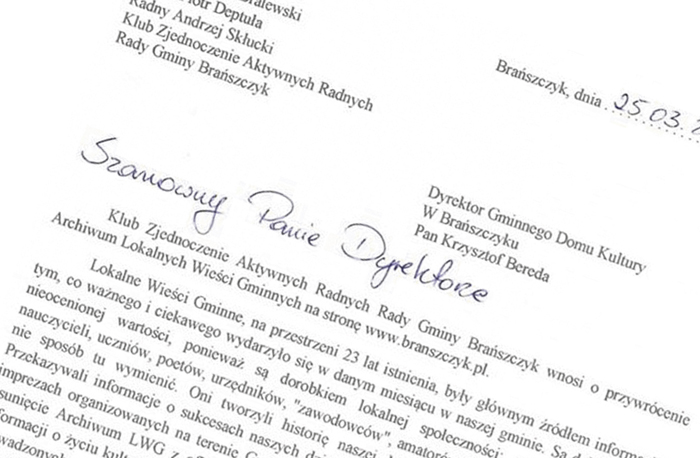 Piotr Deptuła
Radny Andrzej Skłucki
Klub Zjednoczenie Aktywnych Radnych
Rady Gminy Brańszczyk
Brańszczyk, dnia 25.03.
Dyrektor Gminnego Domu Kultury
W Brańszczyku
Pan Krzysztof Bereda
Szanowny Panie Dyrektorze
Klub Zjednoczenie Aktywnych Radnych Rady Gminy Brańszczyk wnosi o przywrócenie
Archiwum Lokalnych Wieści Gminnych na stronę www.branszczyk.pl.
Lokalne Wieści Gminne, na przestrzeni 23 lat istnienia, były głównym źródłem
tym, co ważnego i ciekawego wydarzyło się w danym miesiącu w naszej gminie. Są
nieocenionej wartości, ponieważ są dorobkiem lokalnej społeczności:
nauczycieli, uczniów, poetów, urzędników, "zawodowców",
nie sposób tu wymienić. Oni tworzyli historię naszej
Przekazywali informacje o sukcesach naszych
imprezach organizowanych na terenie
sunięcie Archiwum LWG z
formacji o życiu